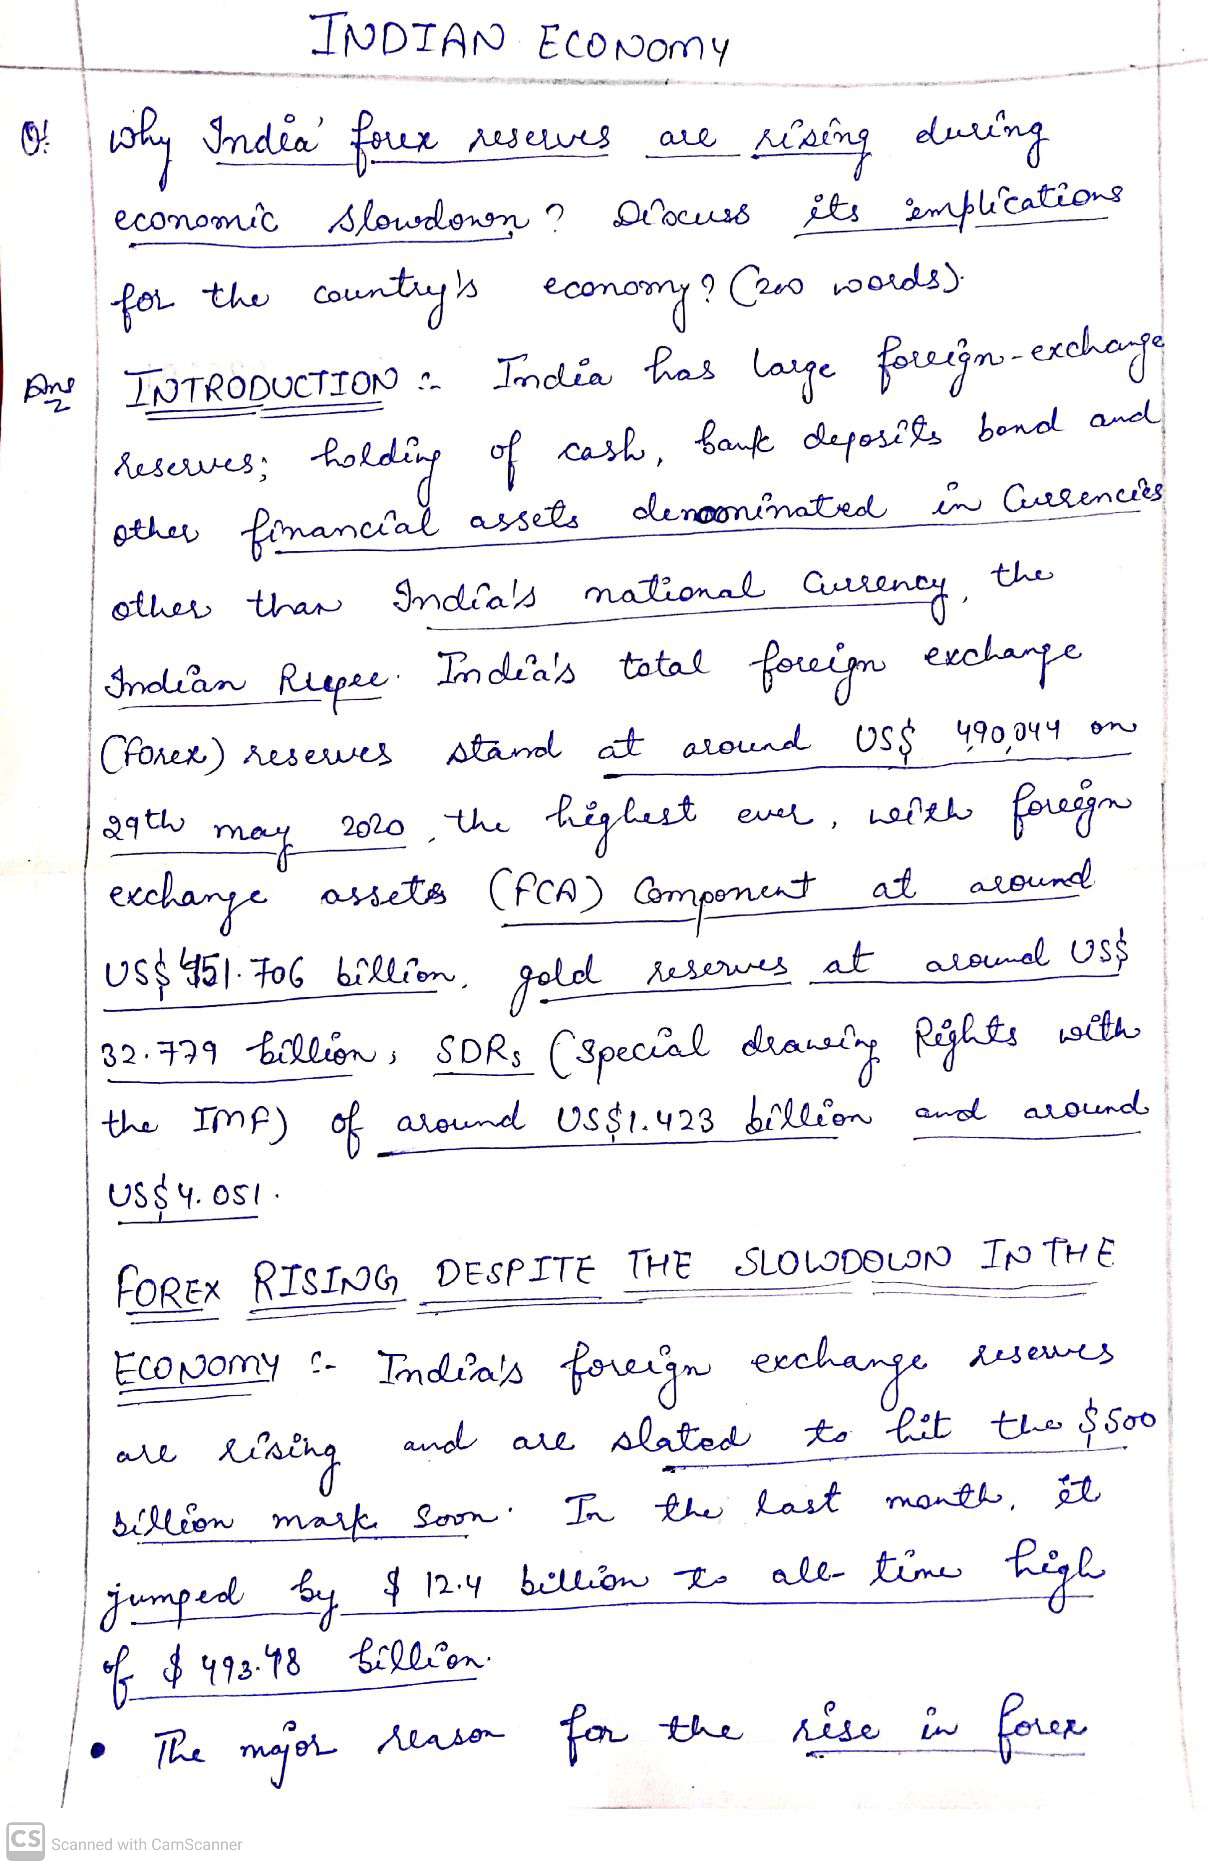 INDIAN ECONOMY
Q! Why India' forex reserves are rising during
economic slowdown? Discuss its implications
for the country's economy? (200 words).
Ans INTRODUCTION :- India has large foreign-exchange
reserves; holding of cash, bank deposits bond and
other financial assets denominated in Currencies
other than India's national Currency, the
Indian Rupee. India's total foreign exchange
(forex) reserves stand at around US$ 490,044 on
29th may 2020, the highest ever, with foreign
exchange assets (FCA) Component at around
US$ 451.706 billion, gold reserves at around US$
32.779 billion, SDRs (special drawing Rights with
the IMF) of around US$1.423 billion and around
US$4.051.
FOREX RISING DESPITE THE SLOWDOWN IN THE
ECONOMY :- India's foreign exchange reserves
are rising and are slated to hit the $500
billion mark soon. In the last month, it
jumped by $ 12.4 billion to all-time high
of $ 493.48 billion.
• The major reason for the rise in forex
CS Scanned with CamScanner